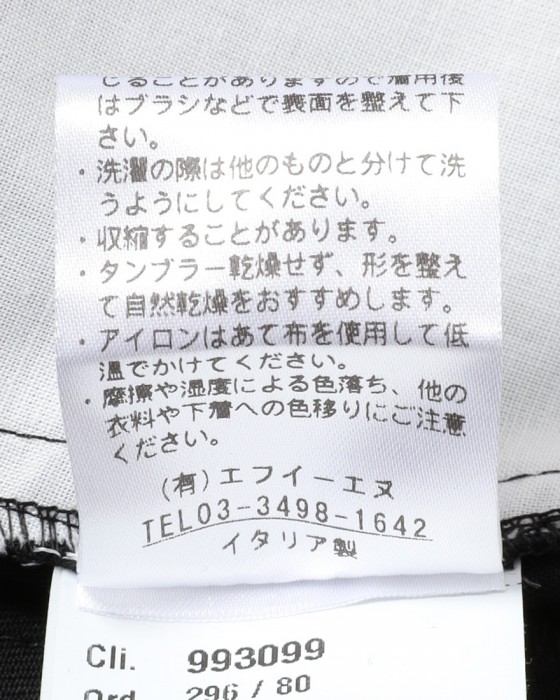 じることがありますので着用後
はブラシなどで表面を整えて下
さい。
・洗濯の際は他のものと分けて洗
うようにしてください。
・収縮することがあります。
・タンブラー乾燥せず、形を整え
て自然乾燥をおすすめします。
・アイロンはあて布を使用して低
温でかけてください。
・摩擦や湿度による色落ち、他の
衣料や下着への色移りにご注意
ください。
(有)エフイーエヌ
TEL03-3498-1642
イタリア製
Cli. 993099
Ord. 296 / 80